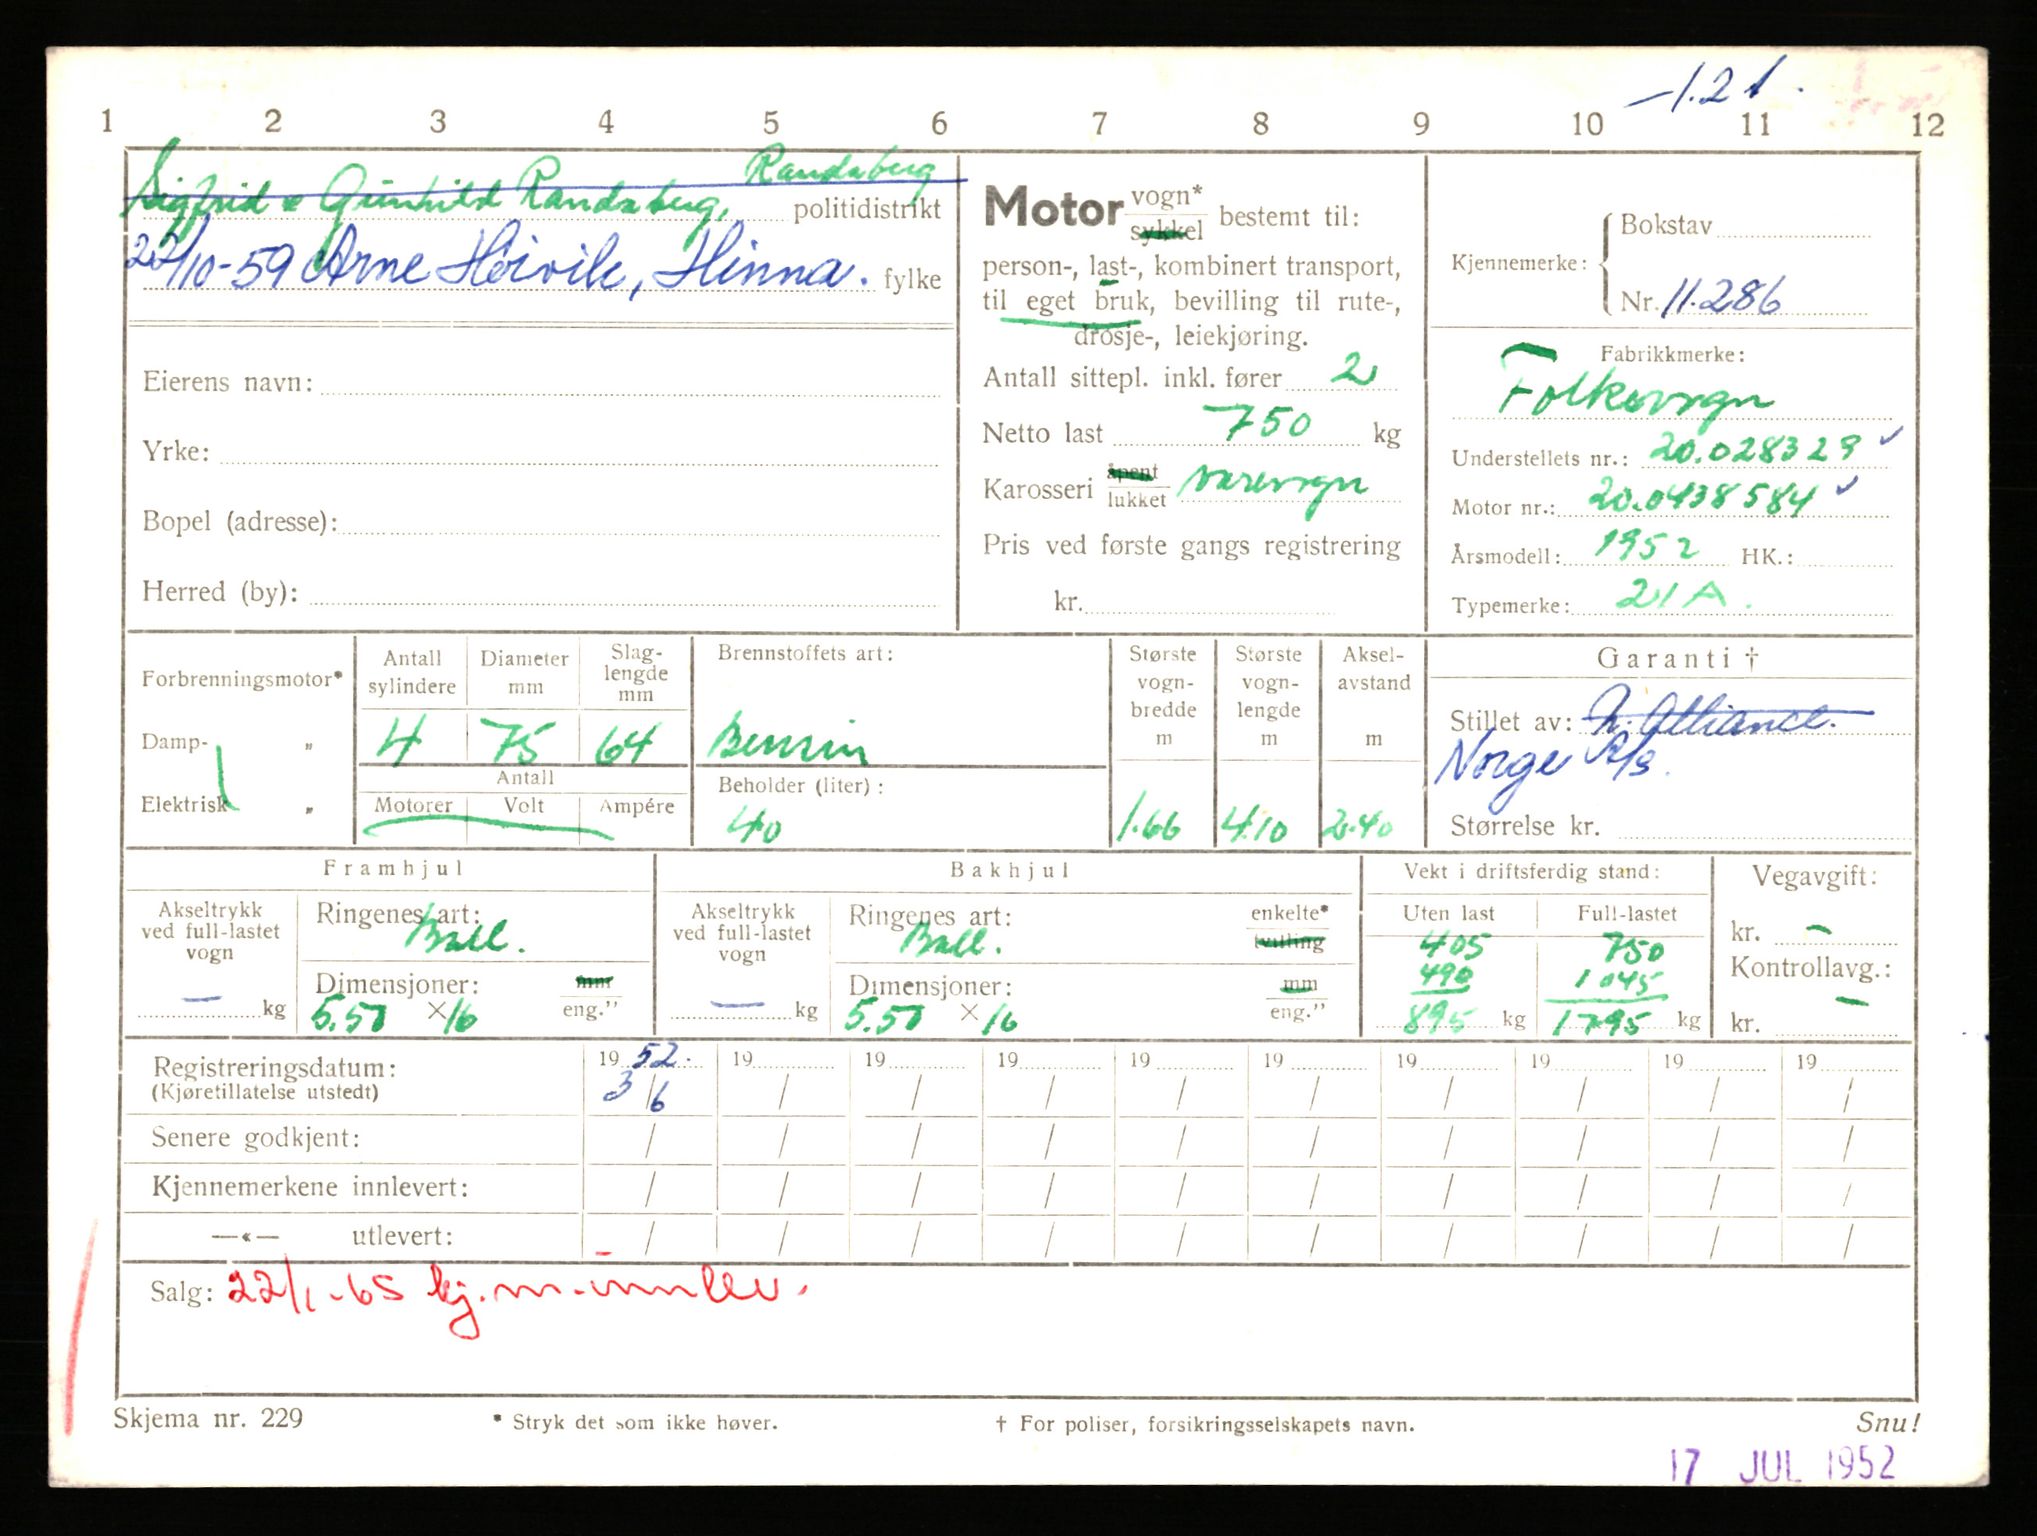 -1.21.
1 2 3 4 5 6 7 8 9 10 11 12
Randaberg
Sigfrid & Gunhild Randaberg, politidistrikt
22/10-59 Arne Høivik, Hinna. fylke
Eierens navn:
Yrke:
Bopel (adresse):
Herred (by):
Motor vogn* sykkel bestemt til:
person-, last-, kombinert transport,
til eget bruk, bevilling til rute-,
drosje-, leiekjøring.
Antall sittepl. inkl. fører 2
Netto last 750 kg
Karosseri åpent lukket varevogn
Pris ved første gangs registrering
kr.
Bokstav
Kjennemerke:
Nr. 11.286
Fabrikkmerke:
Folkevogn
Understellets nr.: 20.028329
Motor nr.: 20.0438584
Årsmodell: 1952 HK.:
Typemerke: 21A.
Forbrenningsmotor*
Damp- "
Elektrisk "
Antall sylindere
Diameter mm
Slag-lengde mm
4 75 64
Antall
Motorer Volt Ampére
Brennstoffets art:
Bensin
Beholder (liter):
40
Største vogn-bredde m
1.66
Største vogn-lengde m
4.10
Aksel-avstand m
2.40
Garanti †
Stillet av: N. Alliance.
Norge A/S.
Størrelse kr.
Framhjul
Akseltrykk ved full-lastet vogn
— kg
Ringenes art:
Ball.
Dimensjoner: mm
5.50 × 16 eng."
Bakhjul
Akseltrykk ved full-lastet vogn
— kg
Ringenes art: enkelte*
Ball. tvilling
Dimensjoner: mm
5.50 × 16 eng."
Vekt i driftsferdig stand:
Uten last Full-lastet
405 750
490 1045
895 kg 1795 kg
Vegavgift:
kr. —
Kontrollavg.:
kr. —
Registreringsdatum: 19 52. 19 19 19 19 19 19 19 19 19
(Kjøretillatelse utstedt) 3/6 / / / / / / / / /
Senere godkjent: / / / / / / / / / /
Kjennemerkene innlevert: / / / / / / / / / /
—«— utlevert: / / / / / / / / / /
Salg: 22/1-65 kj.m. innlev.
Skjema nr. 229 * Stryk det som ikke høver. † For poliser, forsikringsselskapets navn. Snu!
17 JUL 1952